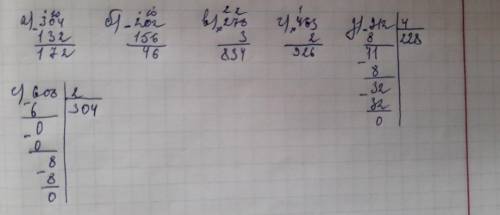 а) -304
132
172
б) -202
156
46
2 2
в) 278
3
834
1
г) 463
2
926
д) 912 4
8 228
11
- 8
- 32
32
0
е) 608 2
- 6 304
- 0
0
- 8
8
0